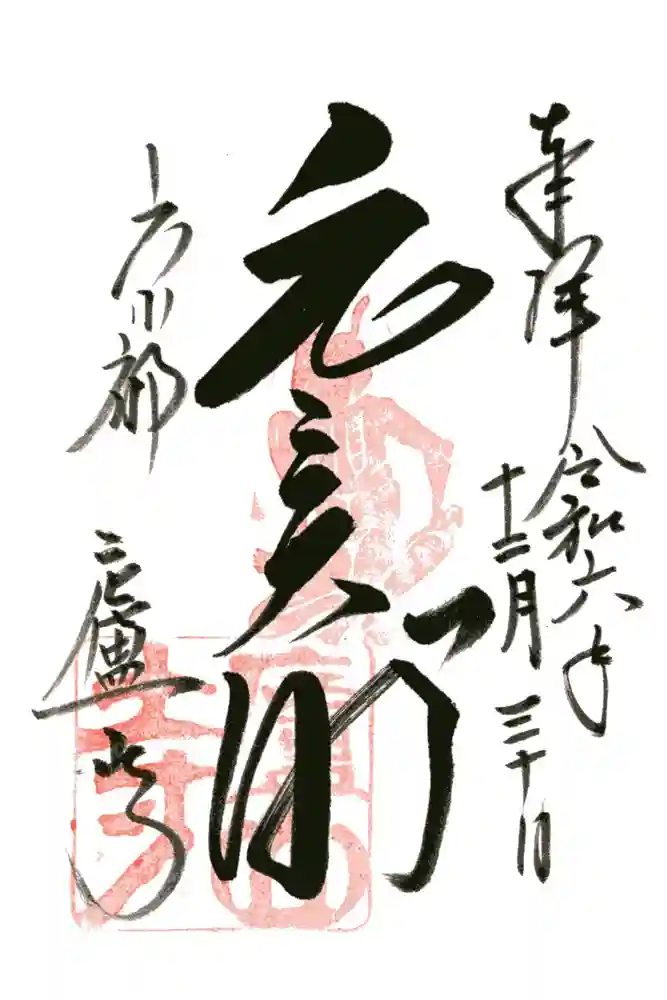 奉拝 令和六年
十二月三十日
元三大師
京都 廬山寺
廬山寺